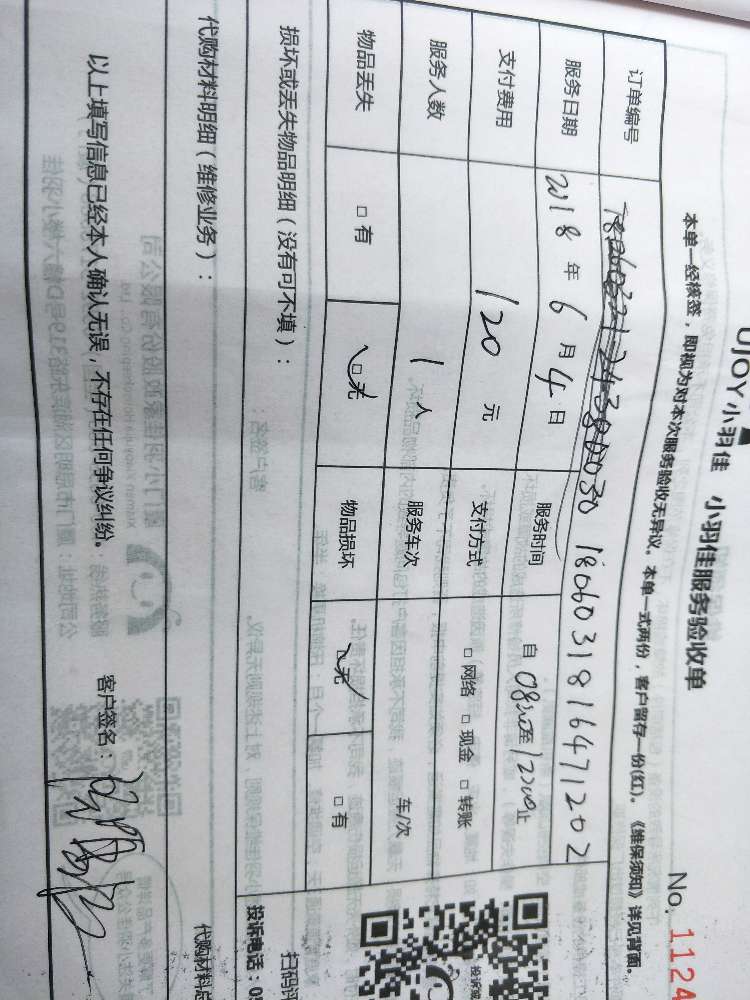 UJOY小羽佳 小羽佳服务验收单
No. 1124
本单一经核签，即视为对本次服务验收无异议。本单一式两份，客户留存一份(红)。《维保须知》详见背面。
订单编号 1806031816471202
服务日期 2018年6月4日 服务时间 自08:00至12:00止
支付费用 120元 支付方式 □网络 □现金 □转账
服务人数 1人 服务车次 车/次
物品丢失 □有 □无 物品损坏 □无 □有
损坏或丢失物品明细（没有可不填）：
扫码评
投诉电话：05
代购材料明细（维修业务）：
代购材料总
以上填写信息已经本人确认无误，不存在任何争议纠纷。 客户签名：